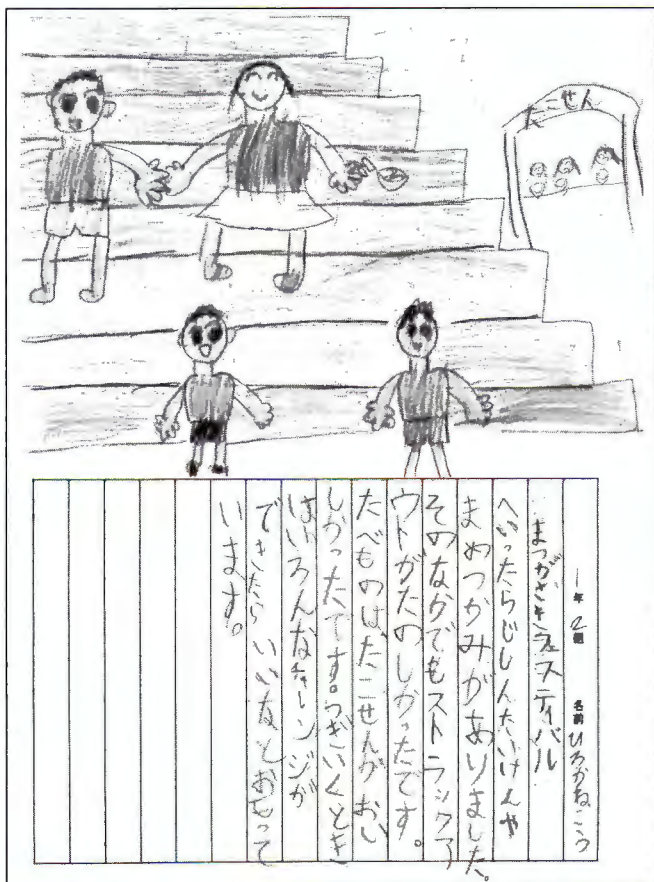 たこせん
1年 2組 名前 ひろがねこう
まつがさきフェスティバル
へいったらじしんたいけんや
まめつかみがありました。
そのなかでもストラックア
ウトがたのしかったです。
たべものは、たこせんがおい
しかったです。つぎいくとき
は、いろんなチャーンジが
できたらいいなとおもって
います。